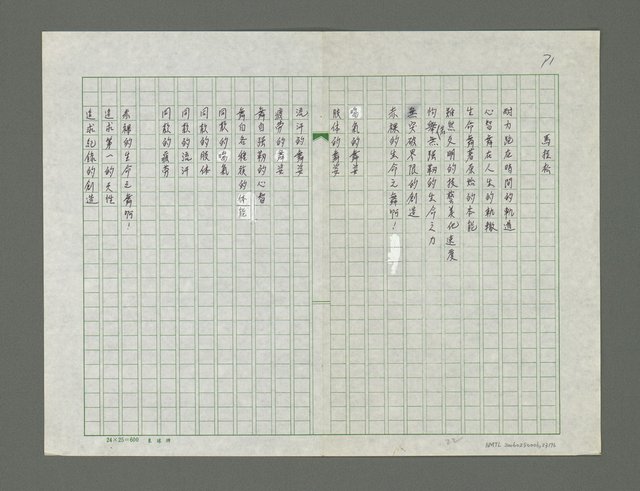 71
馬拉松
耐力跑在時間的軌道
心智舞在人生的軌轍
生命舞著原始的本能
雖然文明的技藝美化速度
仍無強韌的生命之力
無突破界限的創造
赤裸的生命之舞啊！
喘氣的舞姿
肢体的舞姿
流汗的舞姿
疲勞的舞姿
舞自強韌的心智
舞自各種族的体能
同款的喘氣
同款的肢体
同款的流汗
同款的疲勞
赤裸的生命之舞啊！
追求第一的天性
追求紀錄的創造
24×25=600
22